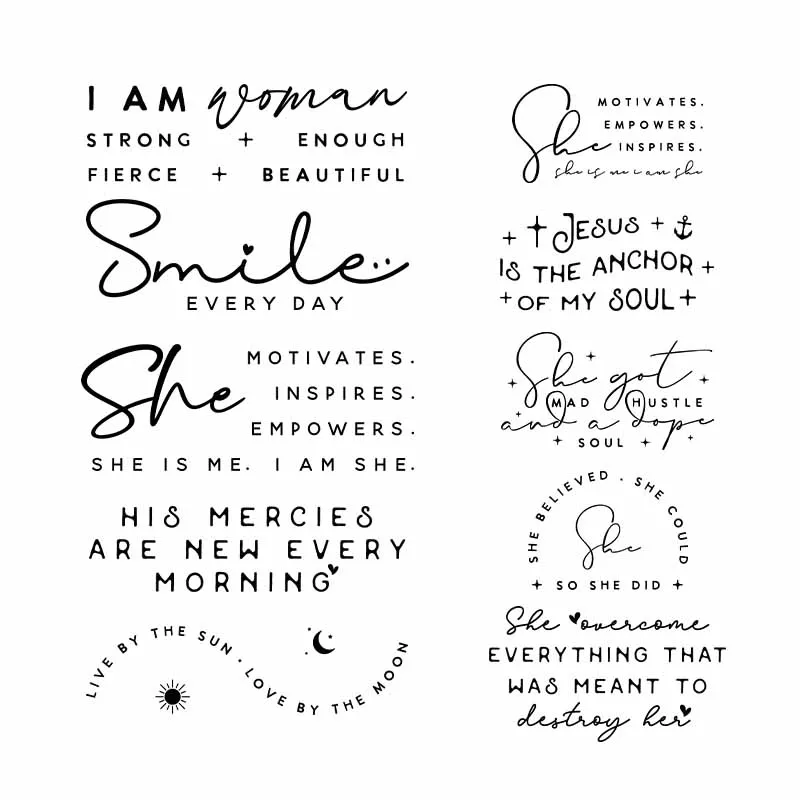 I AM woman
STRONG + ENOUGH
FIERCE + BEAUTIFUL
Smile
EVERY DAY
She
MOTIVATES.
INSPIRES.
EMPOWERS.
SHE IS ME. I AM SHE.
HIS MERCIES
ARE NEW EVERY
MORNING
LIVE BY THE SUN · LOVE BY THE MOON
She
MOTIVATES.
EMPOWERS.
INSPIRES.
she is me i am she
JESUS
IS THE ANCHOR
OF MY SOUL
She got
MAD HUSTLE
and a dope
SOUL
SHE BELIEVED · SHE COULD
She
SO SHE DID
She overcome
EVERYTHING THAT
WAS MEANT TO
destroy her